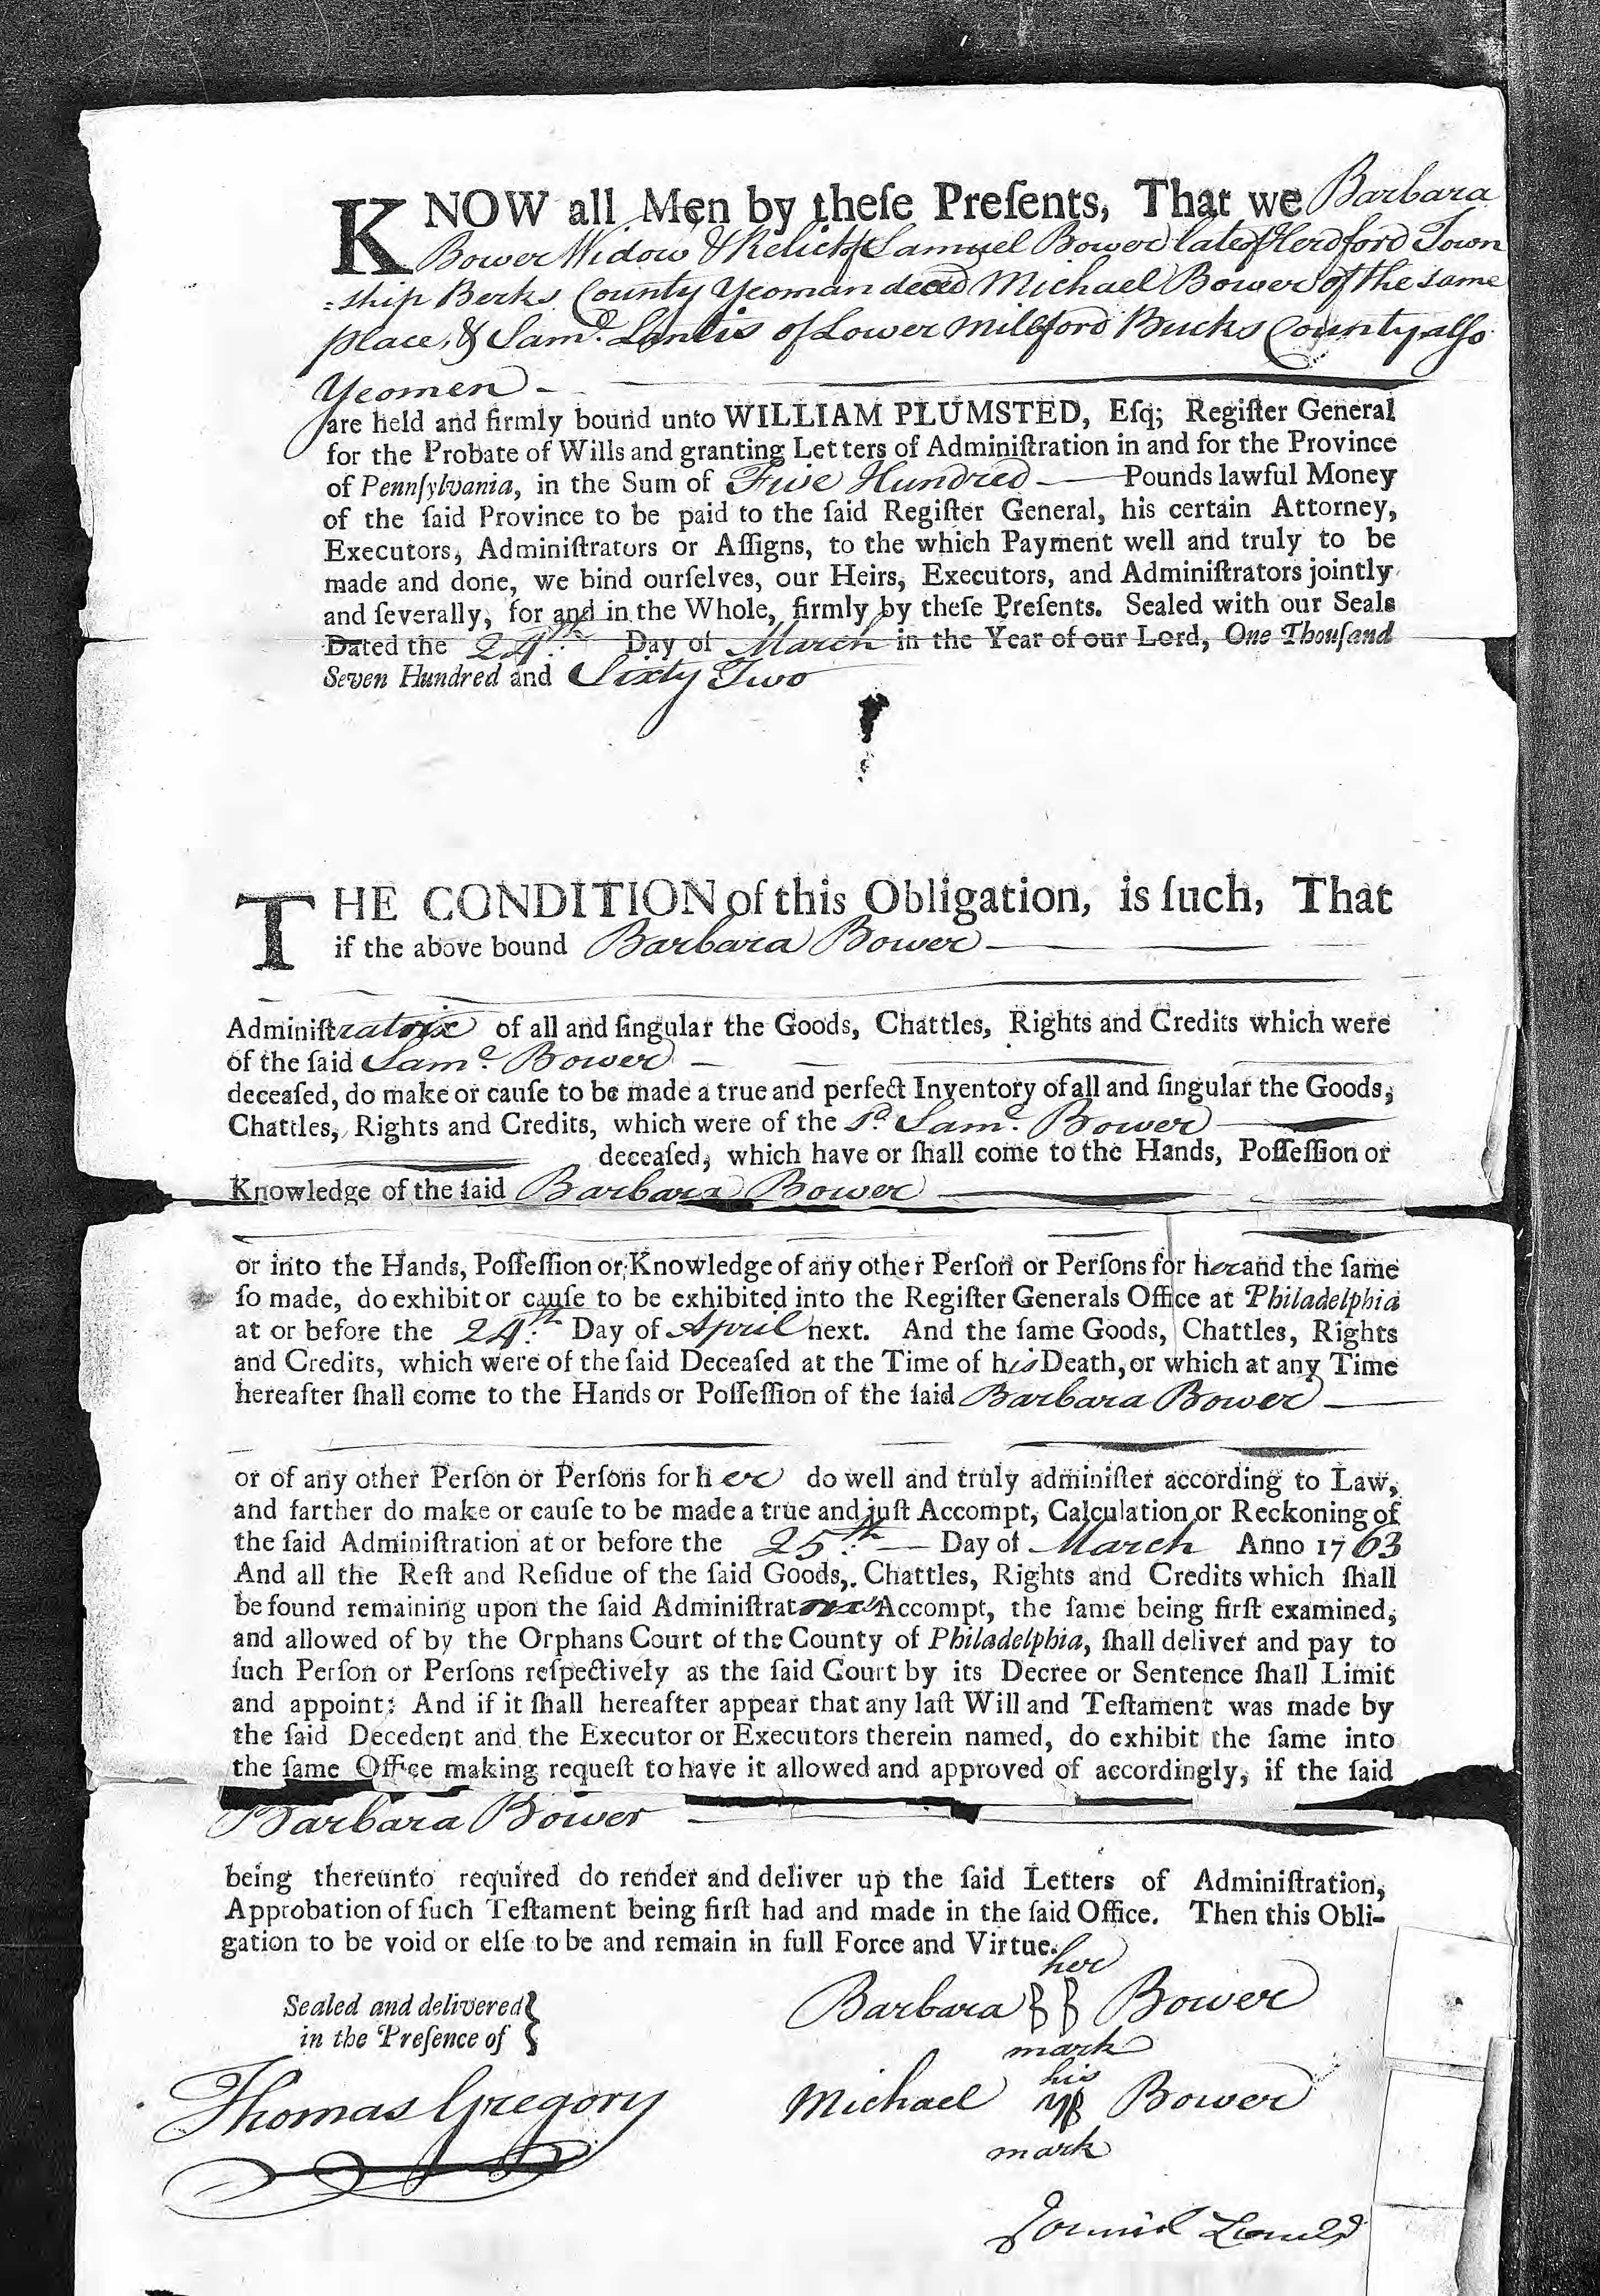 KNOW all Men by theſe Preſents, That we Barbara
Bower Widow & Relict of Samuel Bower late of Herdford Town
=ship Berks County Yeoman deced Michael Bower of the same
place, & Sam.l Lantis of Lower Millford Bucks County also
Yeomen
are held and firmly bound unto WILLIAM PLUMSTED, Eſq; Regiſter General
for the Probate of Wills and granting Letters of Adminiſtration in and for the Province
of Pennſylvania, in the Sum of Five Hundred Pounds lawful Money
of the ſaid Province to be paid to the ſaid Regiſter General, his certain Attorney,
Executors, Adminiſtrators or Aſſigns, to the which Payment well and truly to be
made and done, we bind ourſelves, our Heirs, Executors, and Adminiſtrators jointly
and ſeverally, for and in the Whole, firmly by theſe Preſents. Sealed with our Seals
Dated the 24.th Day of March in the Year of our Lord, One Thouſand
Seven Hundred and Sixty Two
THE CONDITION of this Obligation, is ſuch, That
if the above bound Barbara Bower
Adminiſtratrix of all and ſingular the Goods, Chattles, Rights and Credits which were
of the ſaid Sam.l Bower
deceaſed, do make or cauſe to be made a true and perfect Inventory of all and ſingular the Goods,
Chattles, Rights and Credits, which were of the s.d Sam.l Bower
deceaſed, which have or ſhall come to the Hands, Poſſeſſion or
Knowledge of the ſaid Barbara Bower
or into the Hands, Poſſeſſion or Knowledge of any other Perſon or Perſons for her and the ſame
ſo made, do exhibit or cauſe to be exhibited into the Regiſter Generals Office at Philadelphia
at or before the 24.th Day of April next. And the ſame Goods, Chattles, Rights
and Credits, which were of the ſaid Deceaſed at the Time of his Death, or which at any Time
hereafter ſhall come to the Hands or Poſſeſſion of the ſaid Barbara Bower
or of any other Perſon or Perſons for her do well and truly adminiſter according to Law,
and farther do make or cauſe to be made a true and juſt Accompt, Calculation or Reckoning of
the ſaid Adminiſtration at or before the 25.th Day of March Anno 1763
And all the Reſt and Reſidue of the ſaid Goods, Chattles, Rights and Credits which ſhall
be found remaining upon the ſaid Adminiſtratorxs Accompt, the ſame being firſt examined,
and allowed of by the Orphans Court of the County of Philadelphia, ſhall deliver and pay to
ſuch Perſon or Perſons reſpectively as the ſaid Court by its Decree or Sentence ſhall Limit
and appoint: And if it ſhall hereafter appear that any laſt Will and Teſtament was made by
the ſaid Decedent and the Executor or Executors therein named, do exhibit the ſame into
the ſame Office making requeſt to have it allowed and approved of accordingly, if the ſaid
Barbara Bower
being thereunto required do render and deliver up the ſaid Letters of Adminiſtration,
Approbation of ſuch Teſtament being firſt had and made in the ſaid Office. Then this Obli-
gation to be void or elſe to be and remain in full Force and Virtue.
her
Sealed and delivered Barbara BB Bower
in the Preſence of mark
his
Thomas Gregory Michael MB Bower
mark